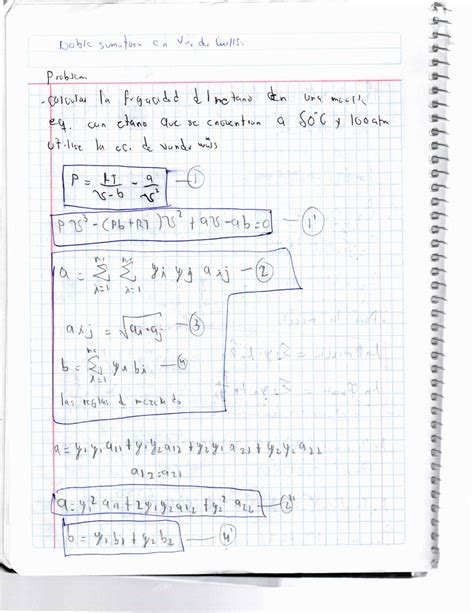 Doble sumatoria en Van der Walls
Problem
- Calcular la fugacidad del metano en una mezcla
eq. con etano que se encuentran a 50°C y 100 atm
utilise la ec. de vander walls
P = RT/(v-b) - a/v² — ①
Pv³ - (Pb+RT)v² + av - ab = 0 — ①'
a = Σ Σ yi yj aij — ②
aij = √(ai·aj) — ③
b = Σ yi bi — ④
las reglas d mezclado
a = y₁y₁a₁₁ + y₁y₂a₁₂ + y₂y₁a₂₁ + y₂y₂a₂₂
a₁₂ = a₂₁
a = y₁²a₁₁ + 2y₁y₂a₁₂ + y₂²a₂₂ — ②'
b = y₁b₁ + y₂b₂ — ④'